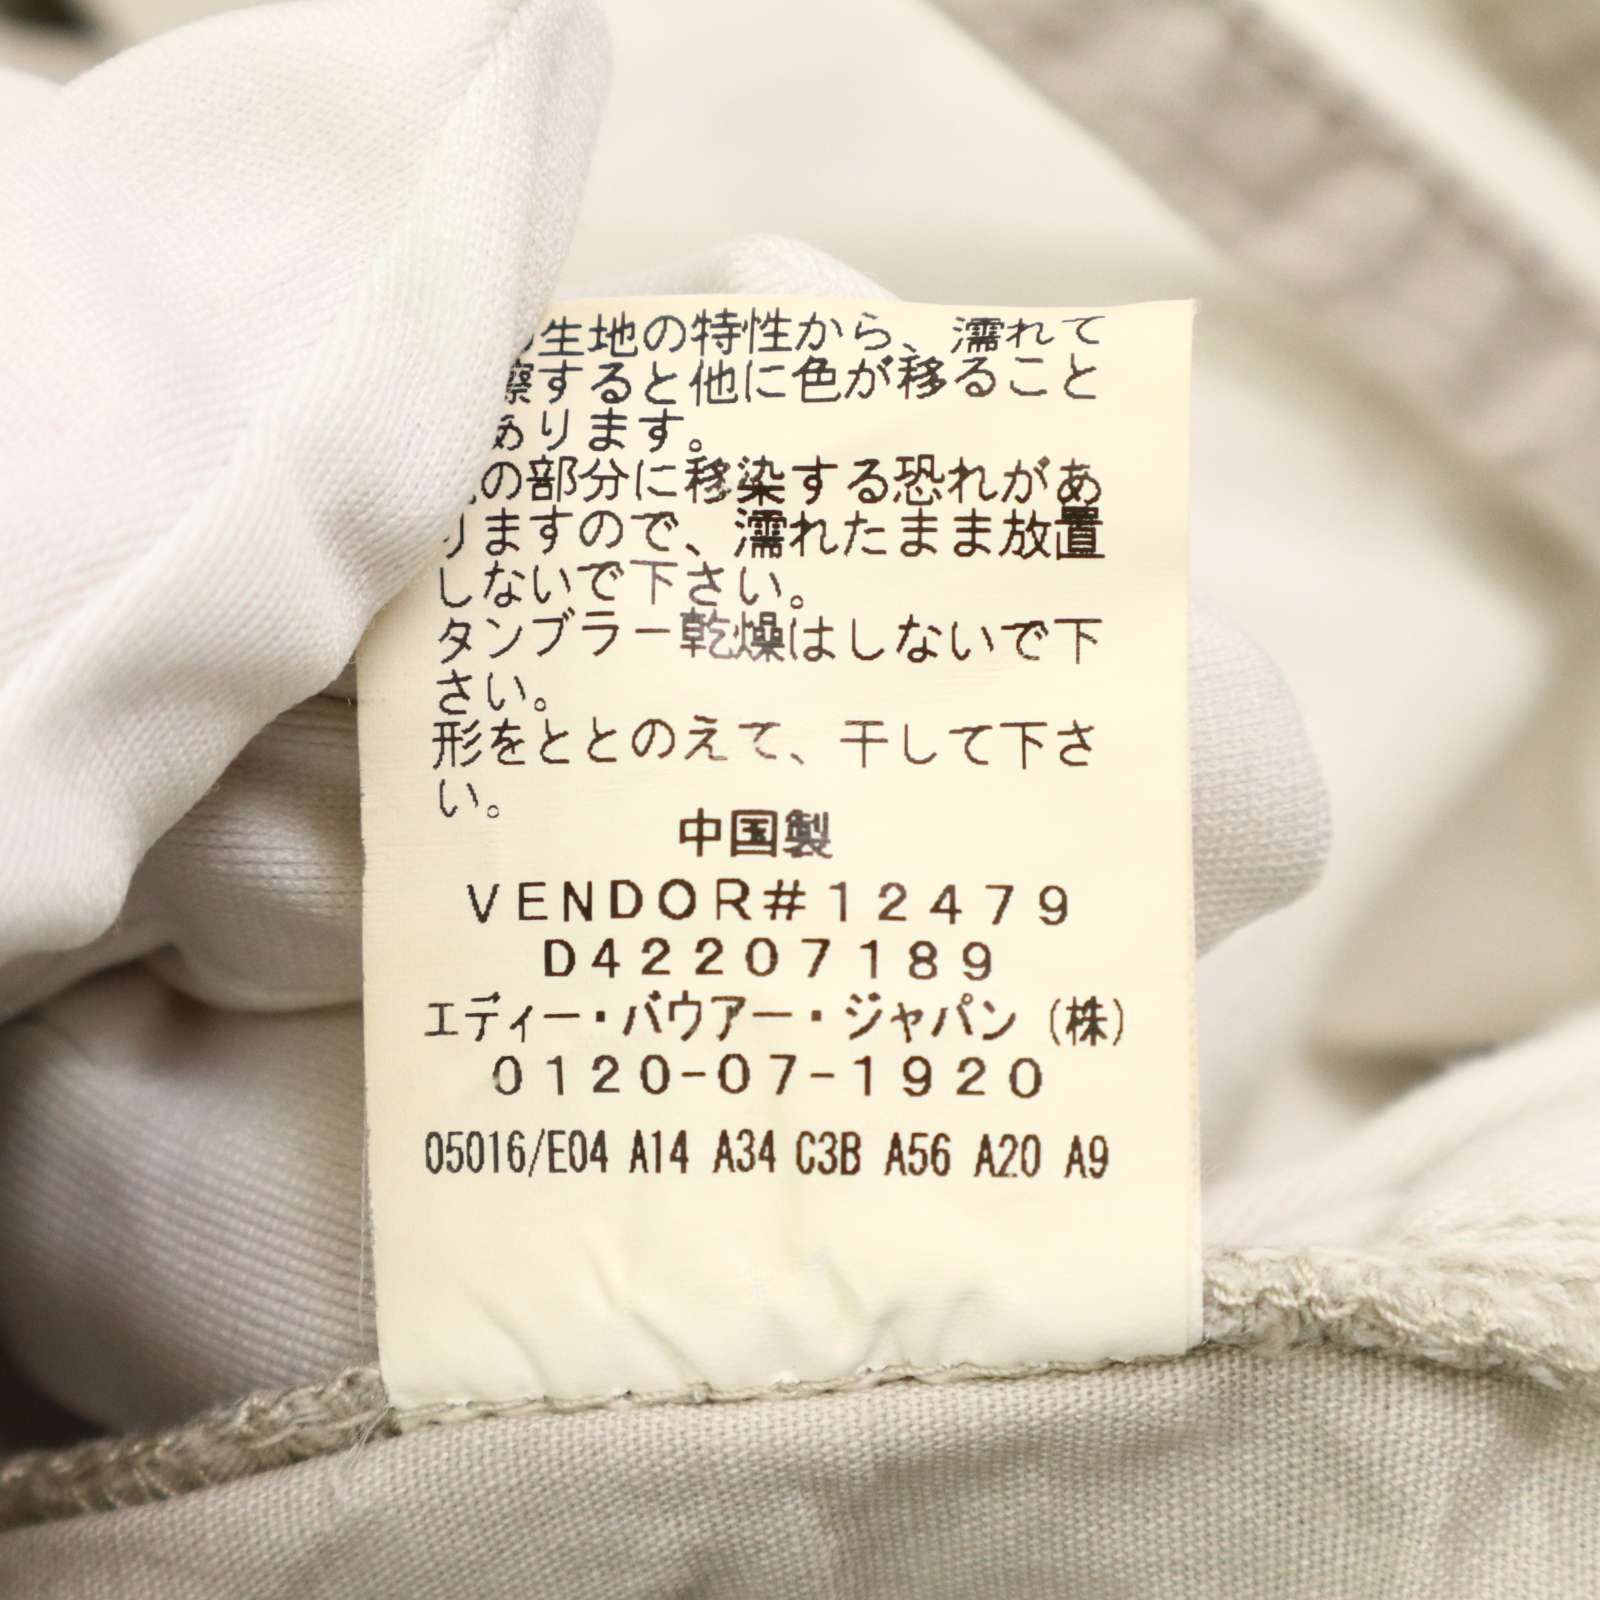 生地の特性から、濡れて
擦すると他に色が移ること
あります。
の部分に移染する恐れがあ
りますので、濡れたまま放置
しないで下さい。
タンブラー乾燥はしないで下
さい。
形をととのえて、干して下さ
い。
中国製
VENDOR#12479
D42207189
エディー・バウアー・ジャパン(株)
0120-07-1920
05016/E04 A14 A34 C3B A56 A20 A9